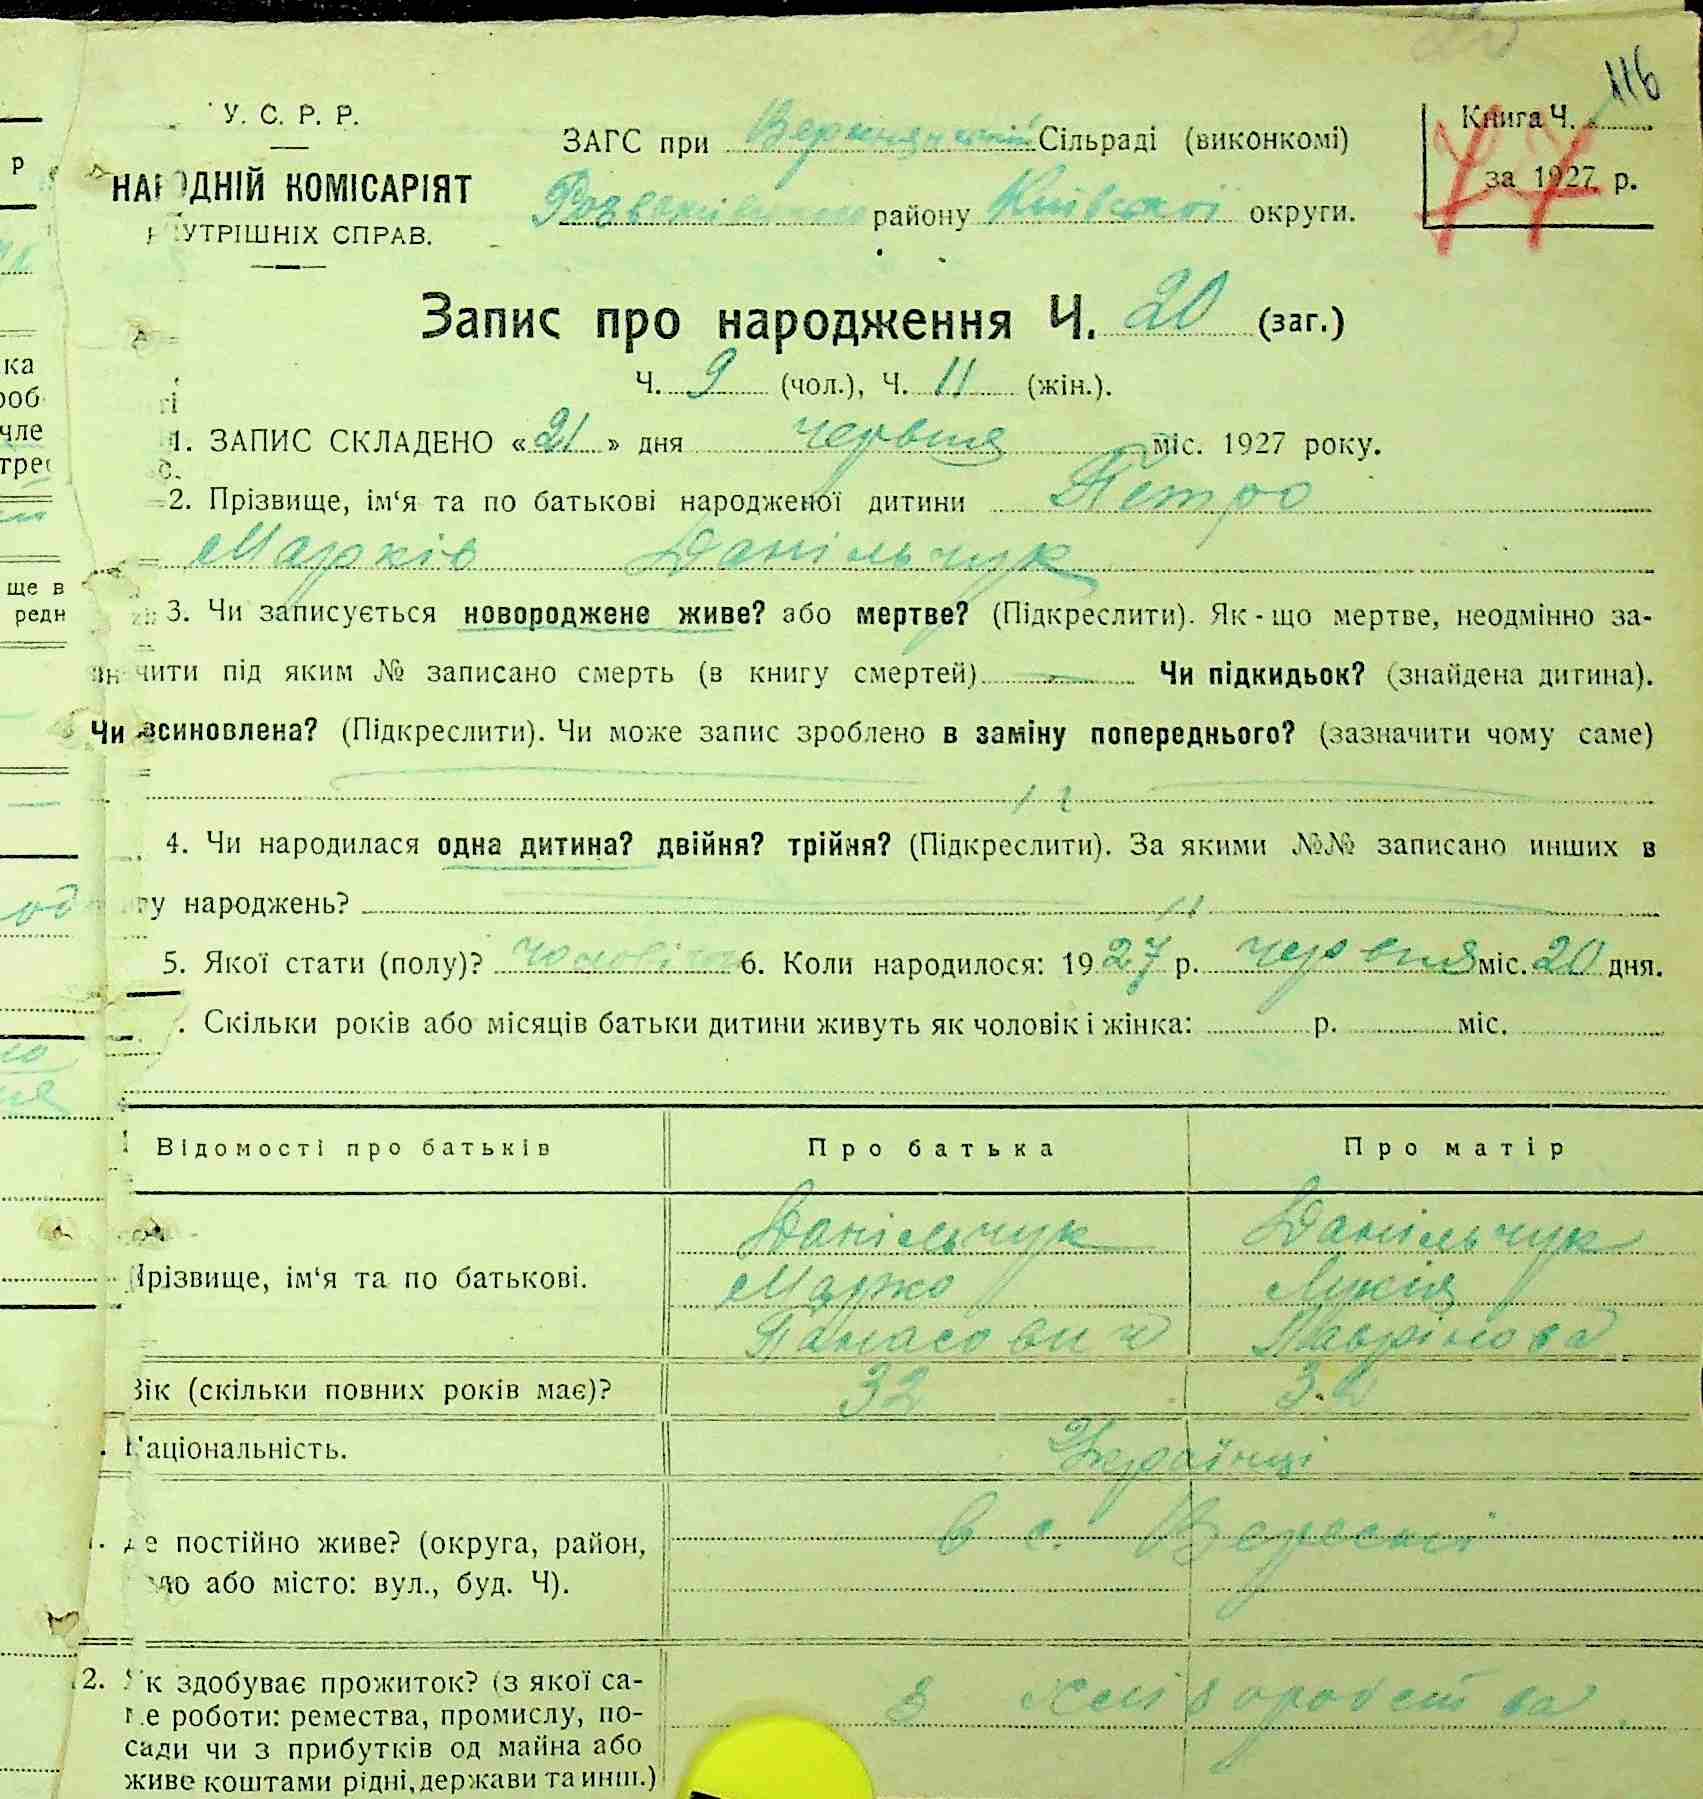 116
У. С. Р. Р.
НАРОДНІЙ КОМІСАРІЯТ
УТРІШНІХ СПРАВ.
ЗАГС при Сільраді (виконкомі)
району Київської округи.
Книга Ч.
за 1927 р.
77
Запис про народження Ч. 20 (заг.)
Ч. 9 (чол.), Ч. 11 (жін.).
1. ЗАПИС СКЛАДЕНО «21» дня червня міс. 1927 року.
2. Прізвище, ім'я та по батькові народженої дитини Петро
Марків Данільчук
3. Чи записується новороджене живе? або мертве? (Підкреслити). Як-що мертве, неодмінно за-
чити під яким № записано смерть (в книгу смертей) — Чи підкидьок? (знайдена дитина).
Чи всиновлена? (Підкреслити). Чи може запис зроблено в заміну попереднього? (зазначити чому саме)
4. Чи народилася одна дитина? двійня? трійня? (Підкреслити). За якими №№ записано инших в
гу народжень?
5. Якої стати (полу)? 6. Коли народилося: 1927 р. червня міс. 20 дня.
. Скільки років або місяців батьки дитини живуть як чоловік і жінка: р. міс.
Відомості про батьків Про батька Про матір
Прізвище, ім'я та по батькові.
Данільчук Данільчук
Марко Лукія
Панасович Лаврінова
Вік (скільки повних років має)? 32
Національність. Українці
де постійно живе? (округа, район, в с. Вересні
ло або місто: вул., буд. Ч).
2. Як здобуває прожиток? (з якої са-
ме роботи: ремества, промислу, по- з хліборобства
сади чи з прибутків од майна або
живе коштами рідні, держави та инш.)